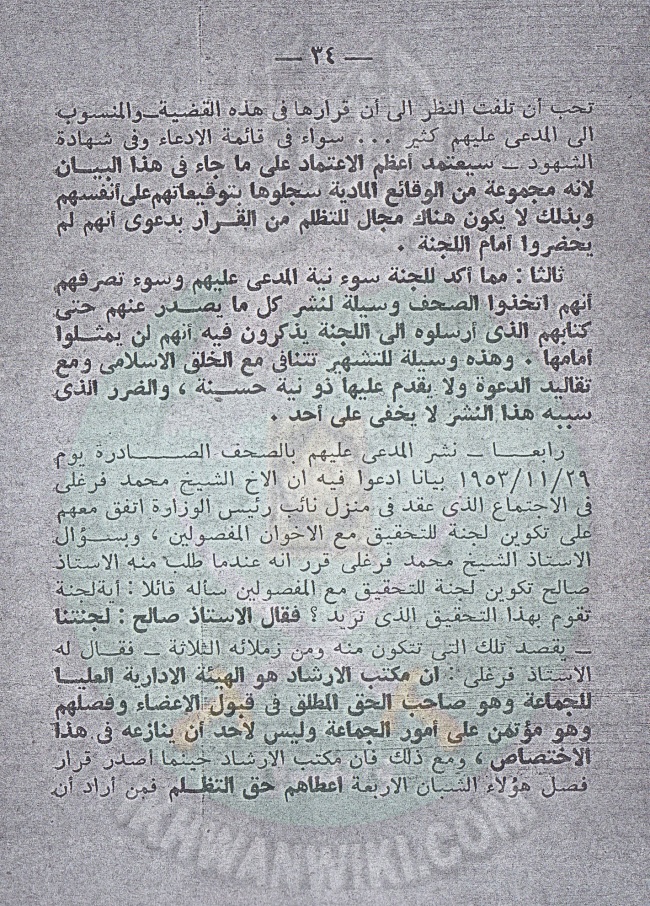 — ٣٤ —
تحب أن تلفت النظر الى أن قرارها فى هذه القضية ـ والمنسوب
الى المدعى عليهم كثير ... سواء فى قائمة الادعاء وفى شهادة
الشهود ـ سيعتمد أعظم الاعتماد على ما جاء فى هذا البيان
لانه مجموعة من الوقائع المادية سجلوها بتوقيعاتهم على أنفسهم
وبذلك لا يكون هناك مجال للتظلم من القرار بدعوى أنهم لم
يحضروا أمام اللجنة .
ثالثا : مما أكد للجنة سوء نية المدعى عليهم وسوء تصرفهم
أنهم اتخذوا الصحف وسيلة لنشر كل ما يصدر عنهم حتى
كتابهم الذى أرسلوه الى اللجنة يذكرون فيه أنهم لن يمثلوا
أمامها . وهذه وسيلة للتشهير تتنافى مع الخلق الاسلامى ومع
تقاليد الدعوة ولا يقدم عليها ذو نية حسنة ، والضرر الذى
سببه هذا النشر لا يخفى على أحد .
رابعا ـ نشر المدعى عليهم بالصحف الصادرة يوم
١٩٥٣/١١/٢٩ بيانا ادعوا فيه ان الاخ الشيخ محمد فرغلى
فى الاجتماع الذى عقد فى منزل نائب رئيس الوزارة اتفق معهم
على تكوين لجنة للتحقيق مع الاخوان المفصولين ، وبسؤال
الاستاذ الشيخ محمد فرغلى قرر انه عندما طلب منه الاستاذ
صالح تكوين لجنة للتحقيق مع المفصولين سأله قائلا : أية لجنة
تقوم بهذا التحقيق الذى تريد ؟ فقال الاستاذ صالح : لجنتنا
ـ يقصد تلك التى تتكون منه ومن زملائه الثلاثة ـ فقال له
الاستاذ فرغلى : ان مكتب الارشاد هو الهيئة الادارية العليا
للجماعة وهو صاحب الحق المطلق فى قبول الاعضاء وفصلهم
وهو مؤتمن على أمور الجماعة وليس لأحد أن ينازعه فى هذا
الاختصاص ، ومع ذلك فان مكتب الارشاد حينما أصدر قرار
فصل هؤلاء الشبان الاربعة اعطاهم حق التظلم فمن أراد أن
IKHWANWIKI.COM